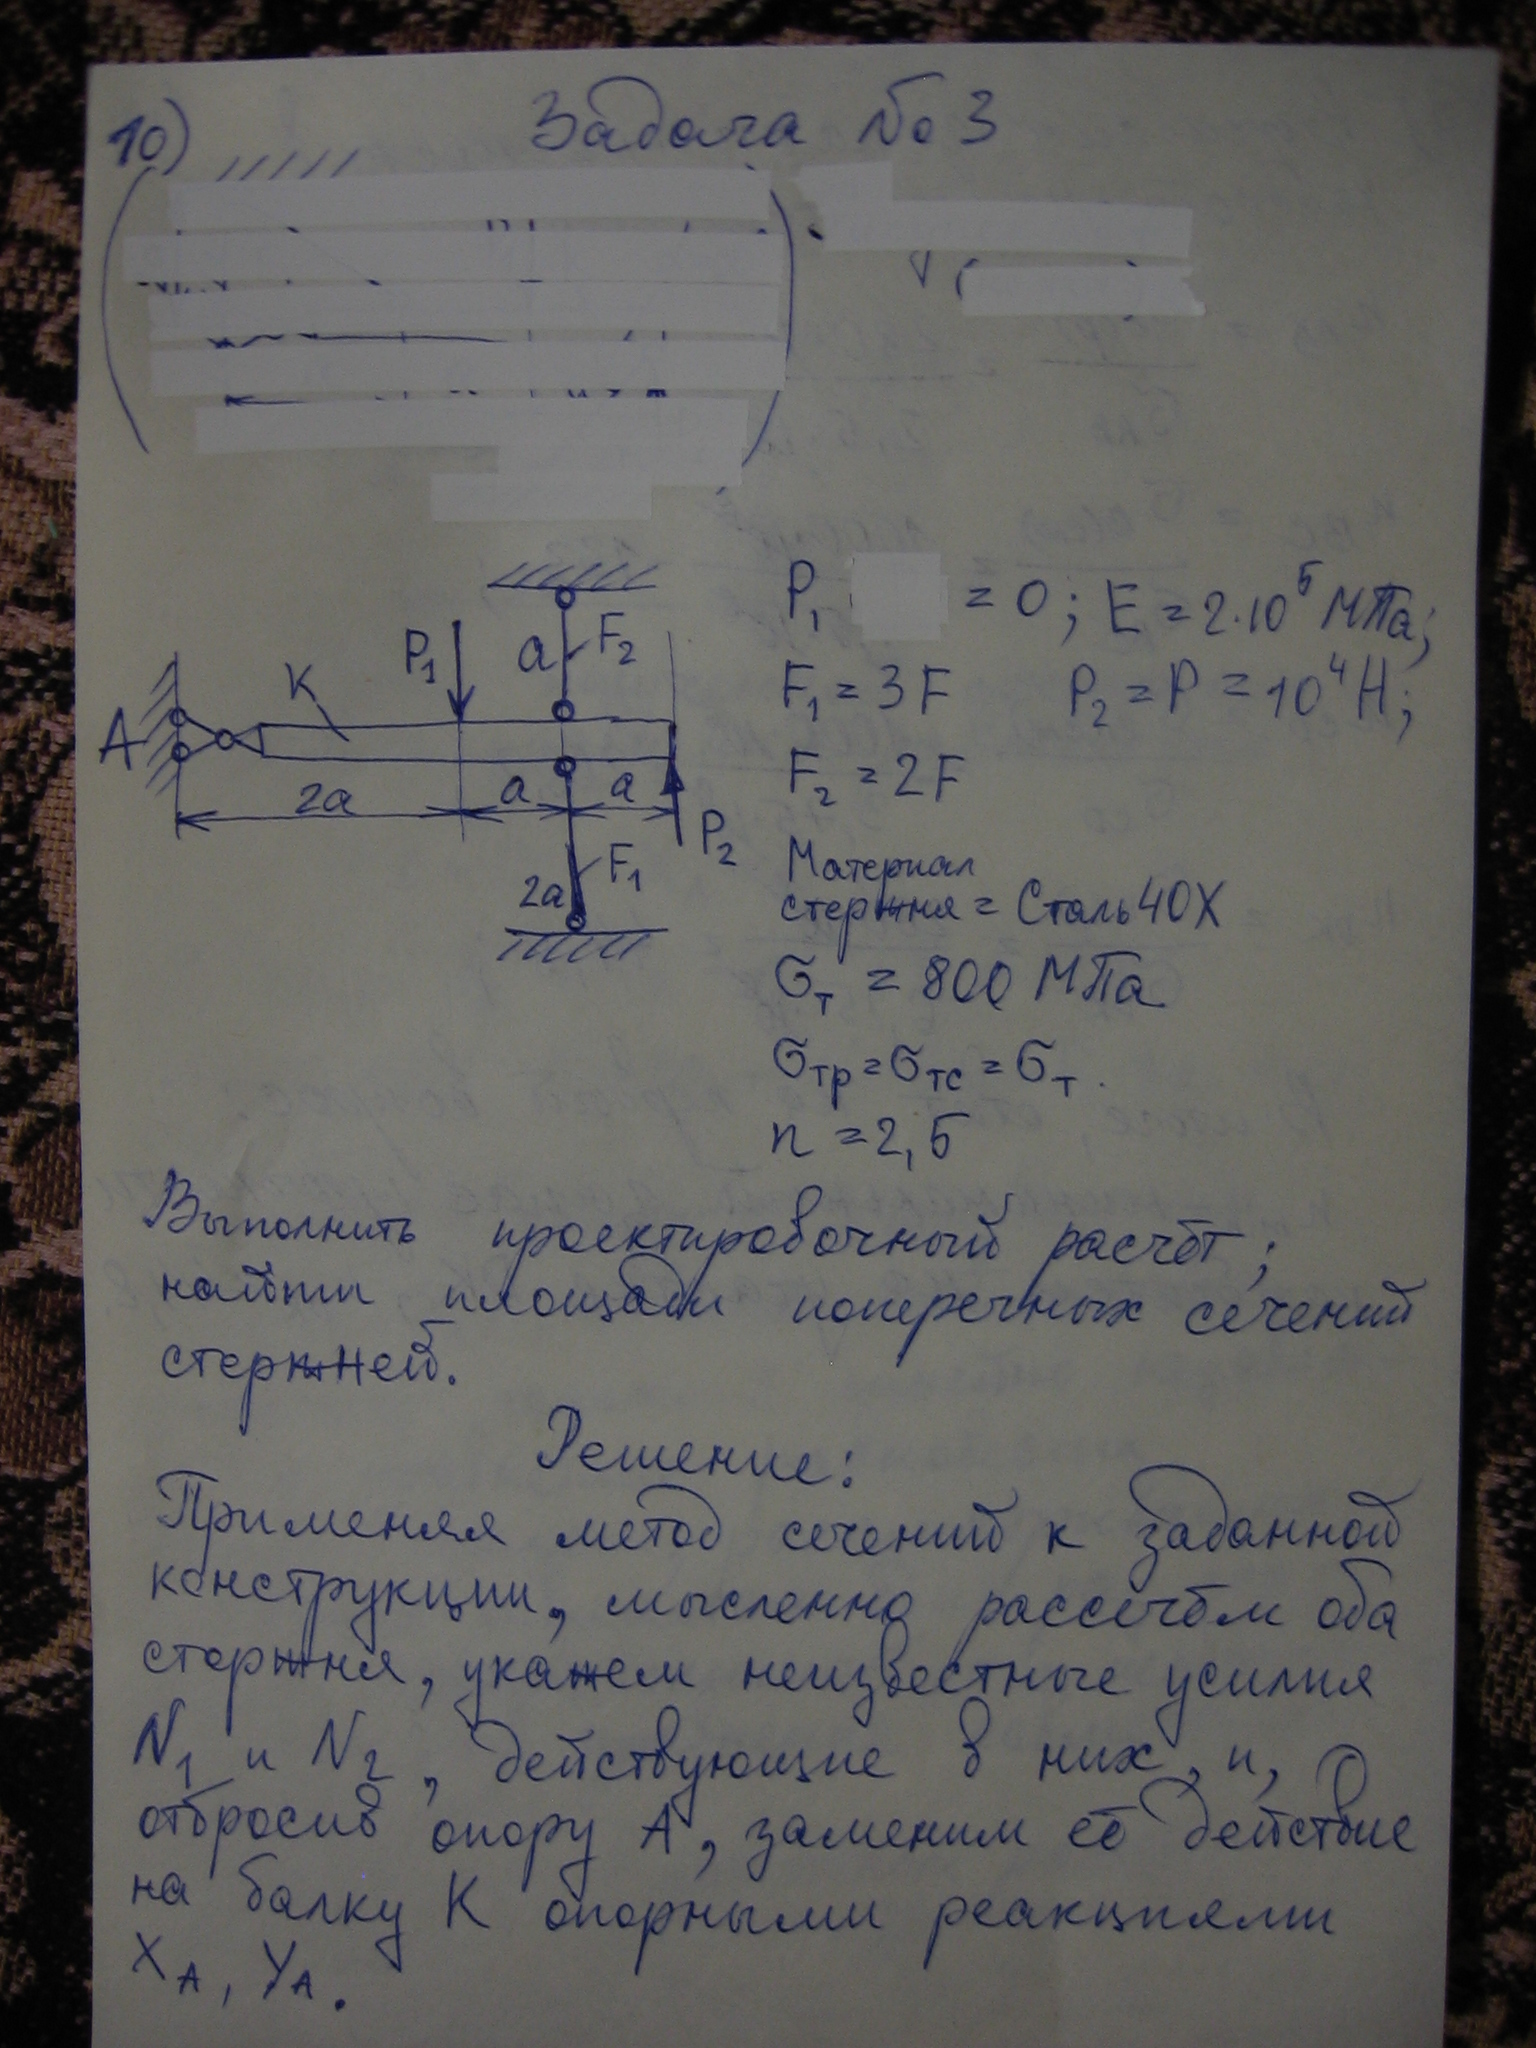 10) Задача № 3
P₁ = 0; E = 2·10⁵ МПа;
F₁ = 3F P₂ = P = 10⁴ Н;
F₂ = 2F
Материал
стержня = Сталь 40Х
σт = 800 МПа
σтр = σтс = σт.
n = 2,5
A
K
P₁
a
F₂
2a
a
a
P₂
2a
F₁
Выполнить проектировочный расчёт;
найти площади поперечных сечений
стержней.
Решение:
Применяя метод сечений к заданной
конструкции, мысленно рассечём оба
стержня, укажем неизвестные усилия
N₁ и N₂, действующие в них, и,
отбросив опору А, заменим её действие
на балку К опорными реакциями
XА, YА.